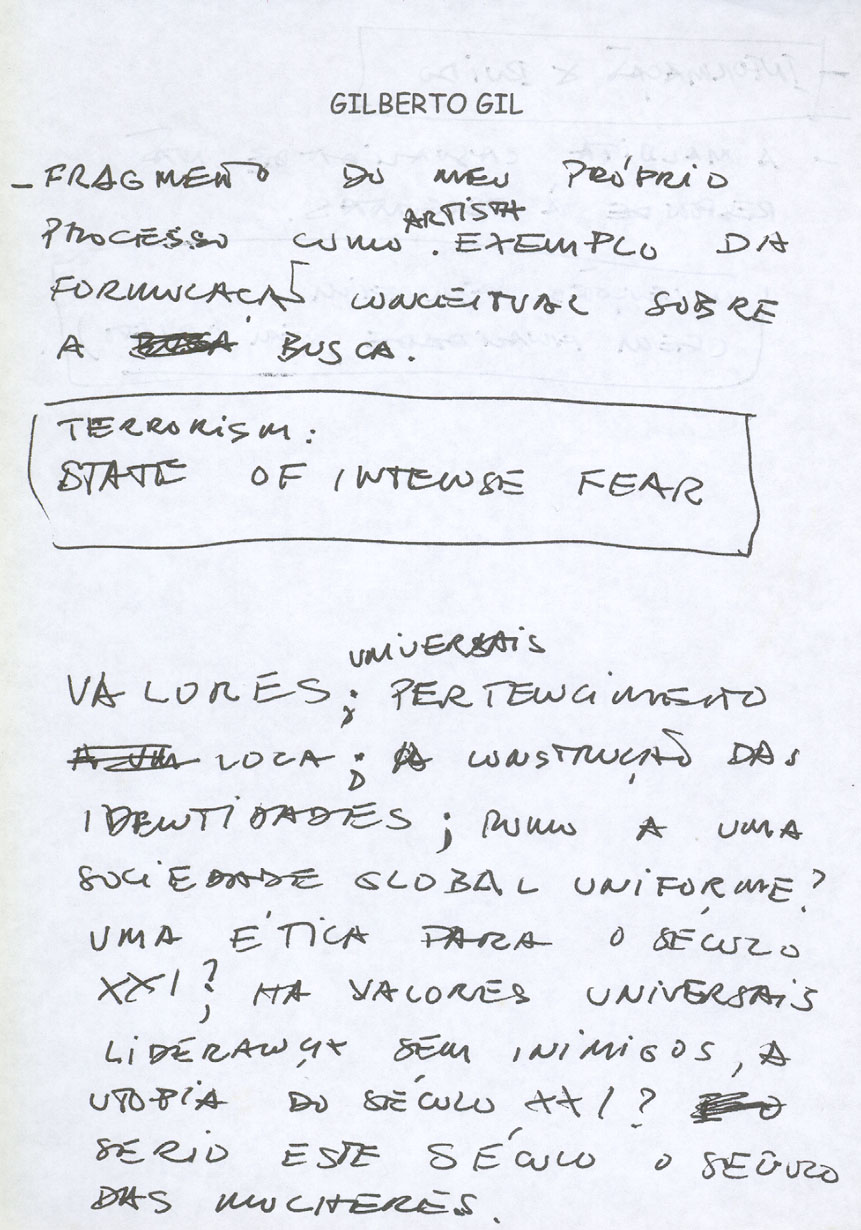 GILBERTO GIL
– FRAGMENTO DO MEU PRÓPRIO
PROCESSO COMO ARTISTA. EXEMPLO DA
FORMULAÇÃO CONCEITUAL SOBRE
A BUSCA.
TERRORISM:
STATE OF INTENSE FEAR
VALORES UNIVERSAIS; PERTENCIMENTO
LOCAL; A CONSTRUÇÃO DAS
IDENTIDADES; RUMO A UMA
SOCIEDADE GLOBAL UNIFORME?
UMA ÉTICA PARA O SÉCULO
XXI?; HA VALORES UNIVERSAIS
LIDERANÇA SEM INIMIGOS, A
UTOPIA DO SÉCULO XXI?
SERIO ESTE SÉCULO O SÉCULO
DAS MULHERES.